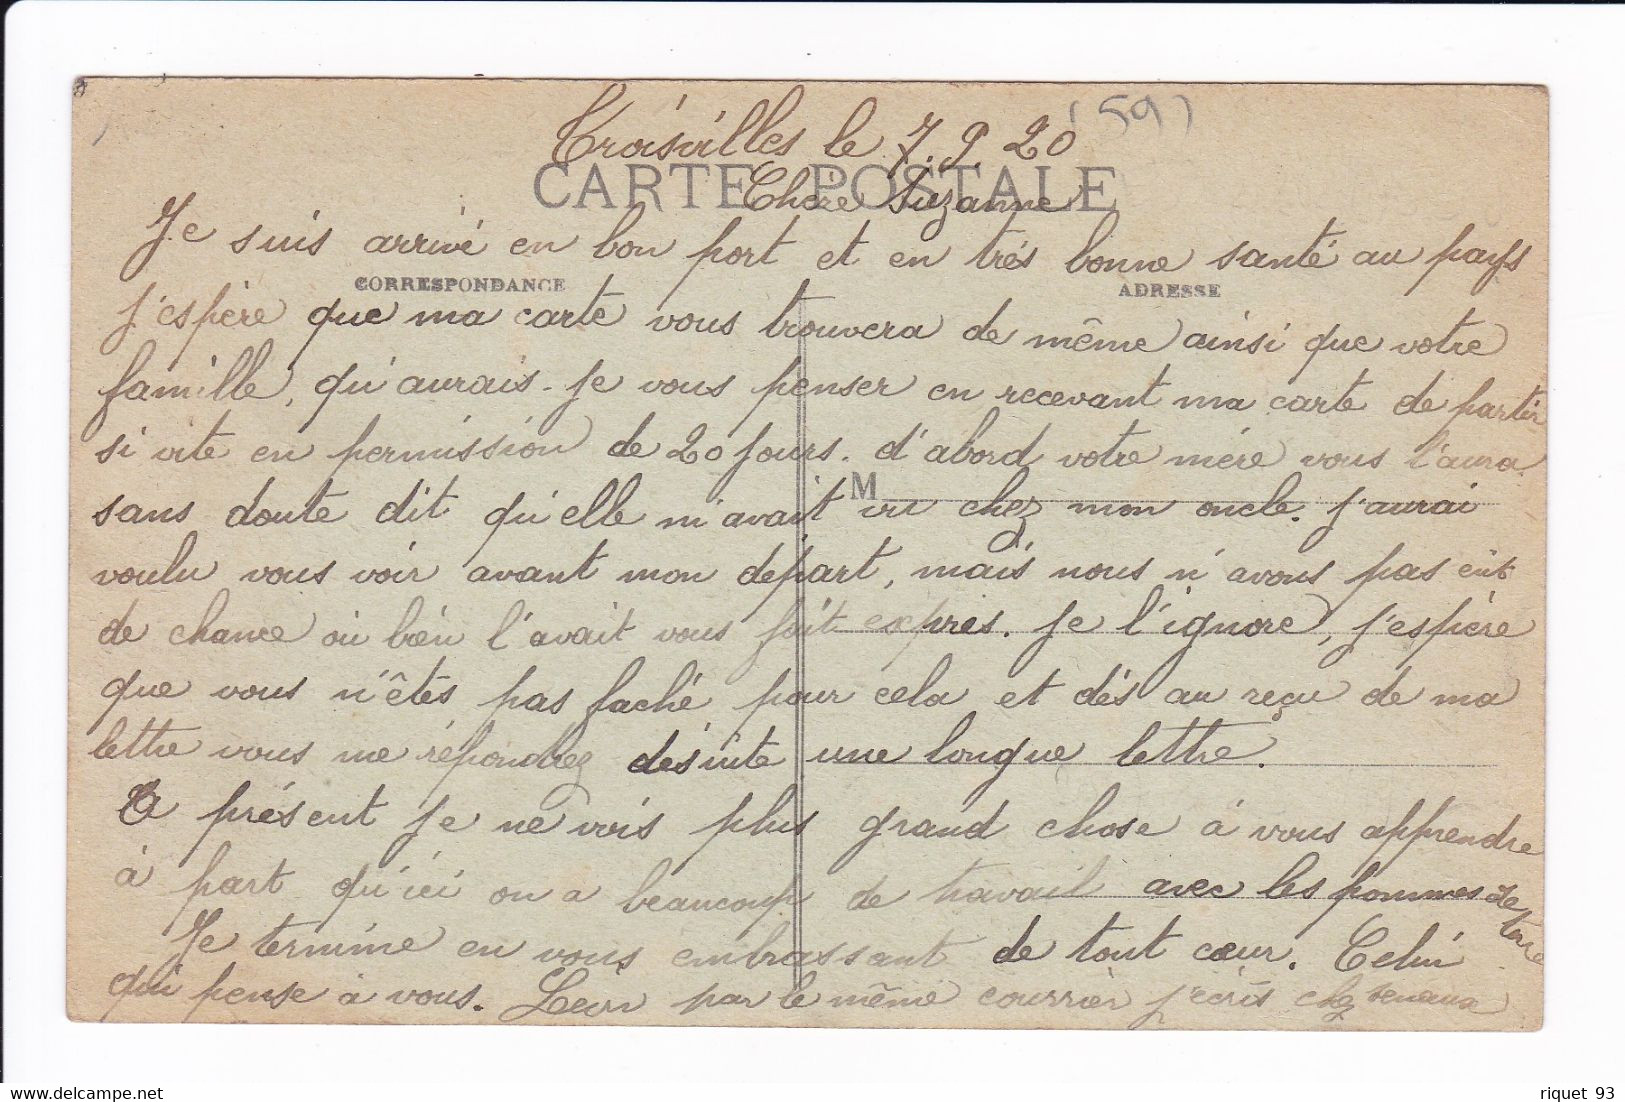 (59)
Troisvilles le 7.9.20
CARTE POSTALE
Chère Suzanne
Je suis arrivé en bon port et en trés bonne santé au pays
CORRESPONDANCE
ADRESSE
j'espère que ma carte vous trouvera de même ainsi que votre
famille, qu'aurais-je vous penser en recevant ma carte de partir
si vite en permission de 20 jours. d'abord votre mére vous l'aura
M
sans doute dit qu'elle m'avait vu chez mon oncle. j'aurai
voulu vous voir avant mon départ, mais nous n'avous pas eût
de chance où bien l'avait vous fait exprés. je l'ignore, j'espère
que vous n'êtes pas faché pour cela et dés au reçu de ma
lettre vous me répondrez désuite une longue lettre.
A présent je ne vois plus grand chose à vous apprendre
à part qu'ici on a beaucoup de travail avec les pommes de terre
Je termine en vous embrassant de tout cœur. Celui
qui pense à vous. Léon par le même courrier j'écris chez
riquet 93
delcampe.net